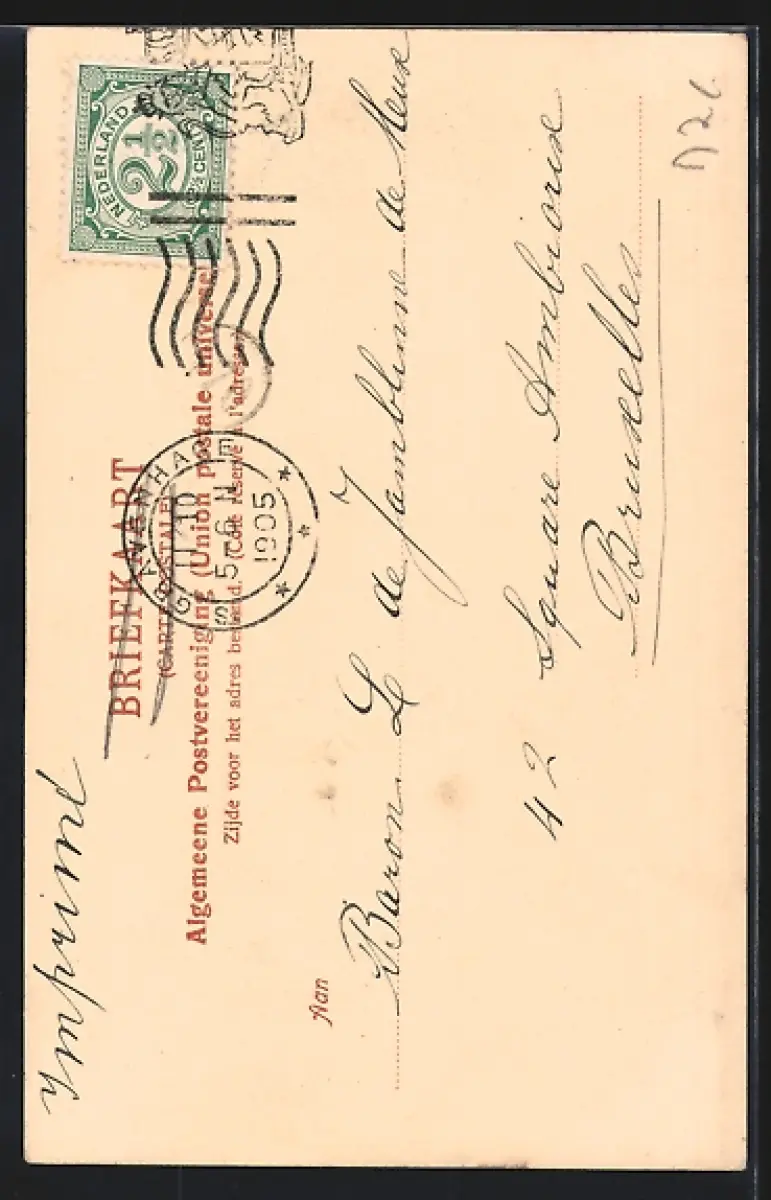 Imprimé
NEDERLAND
2 1/2
2½ CENT
BRIEFKAART
(CARTE POSTALE)
Algemeene Postvereeniging (Union postale universelle)
Zijde voor het adres bestemd. (Côté réservé à l'adresse)
'S GRAVENHAGE
11-12
5 6 N
1905
Aan
Baron L de Jamblinne de Meux
42 Square Ambiorix
Bruxelles